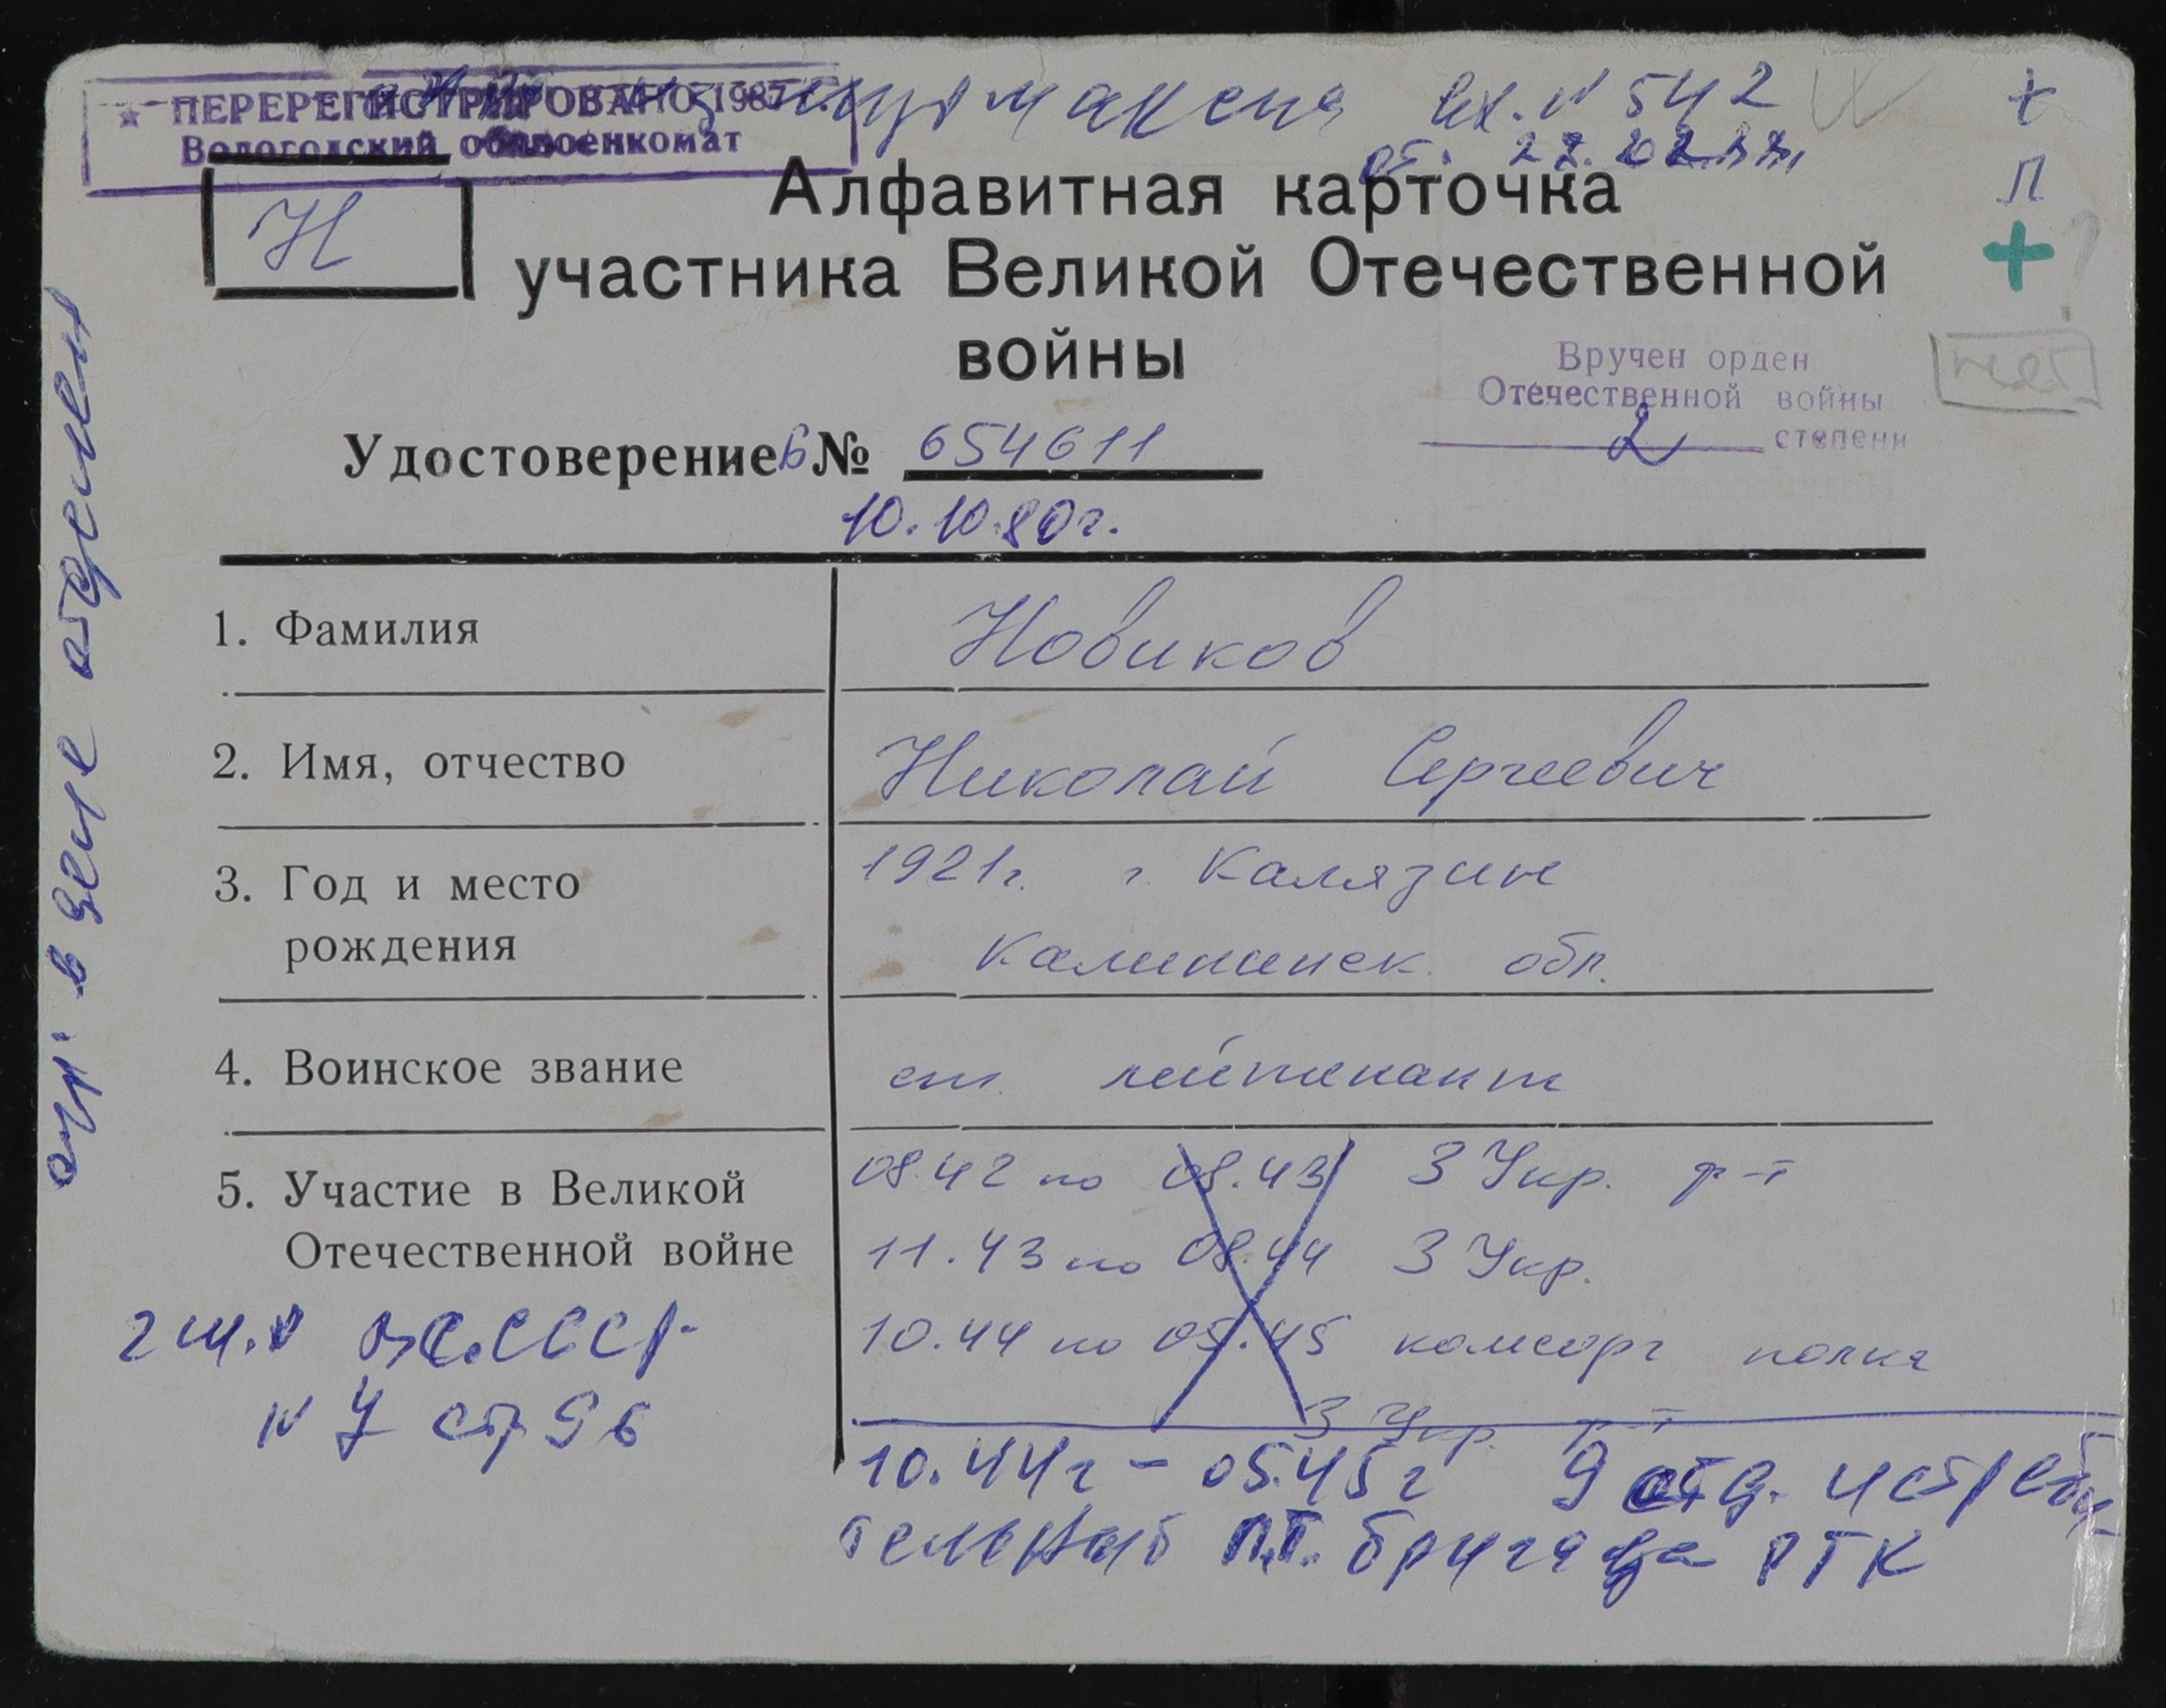 ПЕРЕРЕГИСТРИРОВАНО 1987г.
Вологодский облвоенкомат
вх. N 542
от
Н
Алфавитная карточка
участника Великой Отечественной
войны
+
Л
+
?
нет
Вручен орден
Отечественной войны
2 степени
Удостоверение Б № 654611
10.10.80г.
1. Фамилия Новиков
2. Имя, отчество Николай Сергеевич
3. Год и место рождения 1921г. г. Калязин
Калининск. обл.
4. Воинское звание ст. лейтенант
5. Участие в Великой Отечественной войне
08.42 по 08.43 3 Укр. фр-т
11.43 по 08.44 3 Укр.
10.44 по 05.45 комсорг полка
3 Укр. фр-т
10.44г - 05.45г 9 отд. истреби
тельная п.т. бригада РГК
ВС.СССР
N 7 стр 96